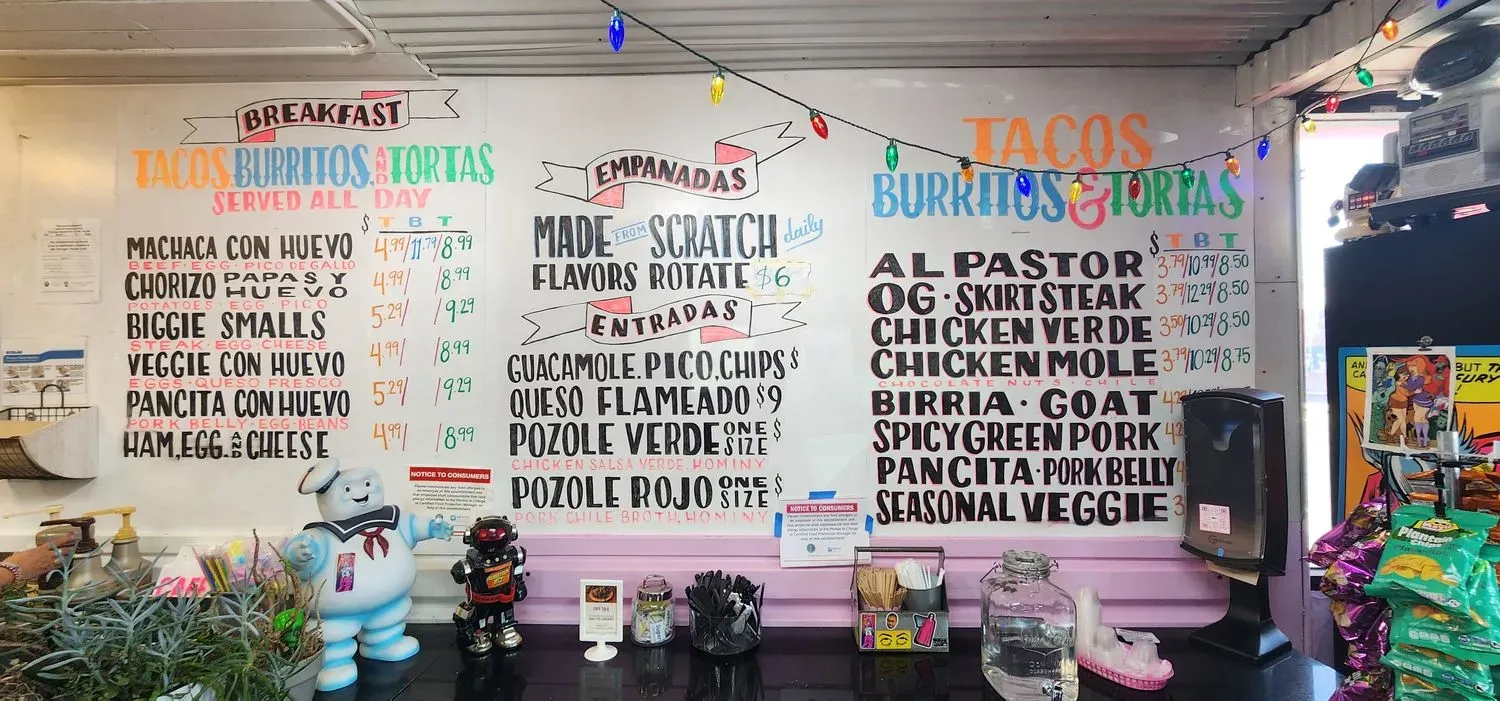 BREAKFAST
TACOS, BURRITOS, AND TORTAS
SERVED ALL DAY
$ T B T
MACHACA CON HUEVO 4.99/11.79/8.99
BEEF·EGG·PICO DE GALLO
CHORIZO PAPAS Y HUEVO 4.99/ /8.99
POTATOES·EGG·PICO
BIGGIE SMALLS 5.29/ /9.29
STEAK·EGG·CHEESE
VEGGIE CON HUEVO 4.99/ /8.99
EGGS·QUESO FRESCO
PANCITA CON HUEVO 5.29/ /9.29
PORK BELLY·EGG·BEANS
HAM, EGG, AND CHEESE 4.99/ /8.99
EMPANADAS
MADE FROM SCRATCH daily
FLAVORS ROTATE $6
ENTRADAS
GUACAMOLE, PICO, CHIPS $
QUESO FLAMEADO $9
POZOLE VERDE ONE SIZE $
CHICKEN SALSA VERDE, HOMINY
POZOLE ROJO ONE SIZE $
PORK CHILE BROTH, HOMINY
TACOS
BURRITOS & TORTAS
$ T B T
AL PASTOR 3.79/10.99/8.50
OG·SKIRT STEAK 3.79/12.29/8.50
CHICKEN VERDE 3.50/10.29/8.50
CHICKEN MOLE 3.79/10.29/8.75
CHOCOLATE·NUTS·CHILE
BIRRIA·GOAT
SPICY GREEN PORK
PANCITA·PORK BELLY
SEASONAL VEGGIE
NOTICE TO CONSUMERS
NOTICE TO CONSUMERS
ECOLAB
CAFE
BUT
Plantain
Chips